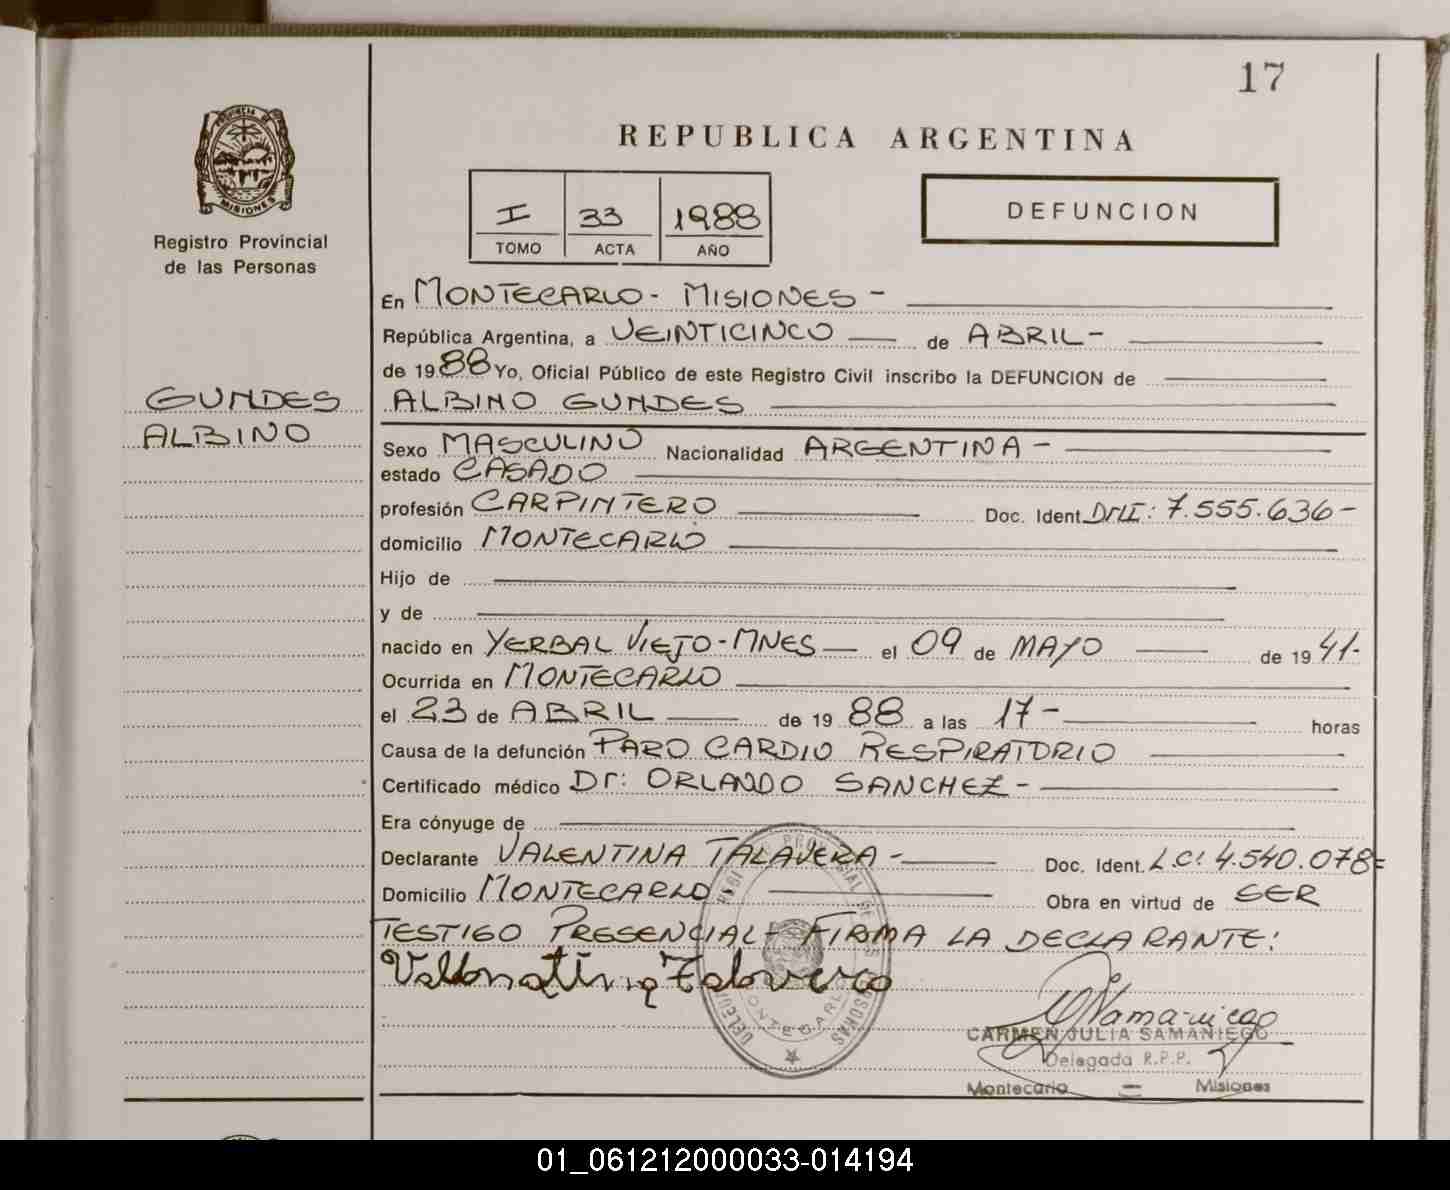 17
PROVINCIA DE
MISIONES
Registro Provincial
de las Personas
REPUBLICA ARGENTINA
I 33 1988
TOMO ACTA AÑO
DEFUNCION
GUNDES
ALBINO
En MONTECARLO - MISIONES -
República Argentina, a VEINTICINCO de ABRIL -
de 1988 Yo, Oficial Público de este Registro Civil inscribo la DEFUNCION de
ALBINO GUNDES
Sexo MASCULINO Nacionalidad ARGENTINA -
estado CASADO
profesión CARPINTERO Doc. Ident. DNI: 7.555.636 -
domicilio MONTECARLO
Hijo de
y de
nacido en YERBAL VIEJO - MNES el 09 de MAYO de 1941-
Ocurrida en MONTECARLO
el 23 de ABRIL de 1988 a las 17 - horas
Causa de la defunción PARO CARDIO RESPIRATORIO
Certificado médico Dr: ORLANDO SANCHEZ -
Era cónyuge de
Declarante VALENTINA TALAVERA - Doc. Ident. L.C: 4.540.078=
Domicilio MONTECARLO Obra en virtud de SER
TESTIGO PRESENCIAL - FIRMA LA DECLARANTE:
CARMEN JULIA SAMANIEGO
Delegada R.P.P.
Montecarlo — Misiones
01_061212000033-014194